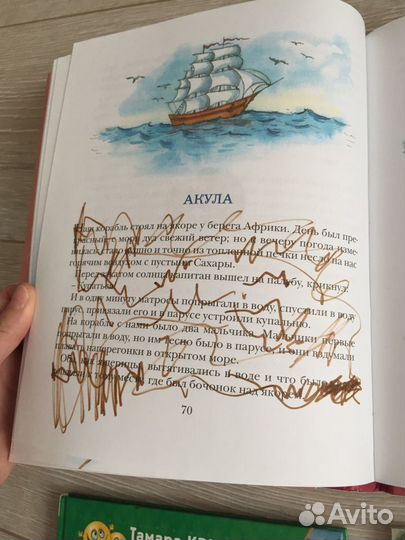 АКУЛА
Наш корабль стоял на якоре у берега Африки. День был пре-
красный, с моря дул свежий ветер; но к вечеру погода изме-
нилась: стало душно и точно из топленной печки несло на нас
горячим воздухом с пустыни Сахары.
Перед закатом солнца капитан вышел на палубу, крикнул:
«Купаться!»
И в одну минуту матросы попрыгали в воду, спустили в воду
парус, привязали его и в парусе устроили купальню.
На корабле с нами было два мальчика. Мальчики первые
попрыгали в воду, но им тесно было в парусе, и они вздумали
плавать наперегонки в открытом море.
Оба, как ящерицы, вытягивались в воде и что было
к тому месту, где был бочонок над якорем.
70
Тамара
Avito